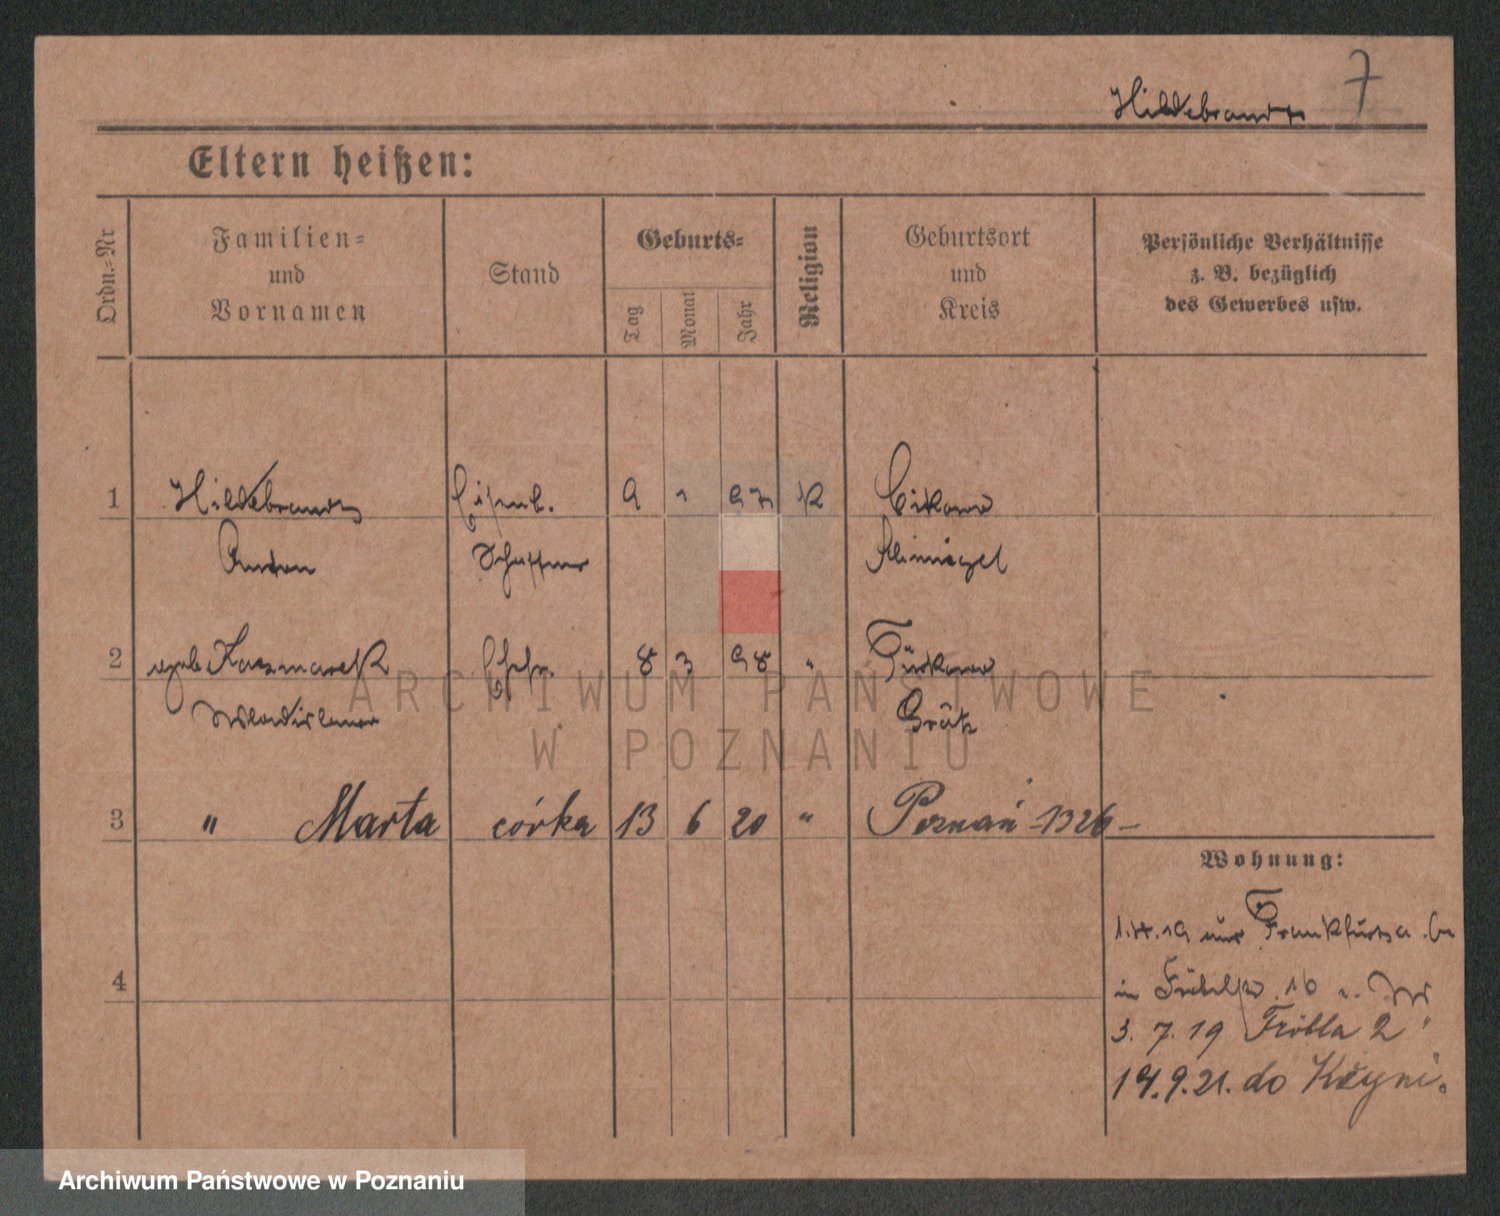 7
Hildebrandt
Eltern heißen:
Ordn.-Nr
Familien-
und
Vornamen
Stand
Geburts-
Tag
Monat
Jahr
Religion
Geburtsort
und
Kreis
Persönliche Verhältnisse
z. B. bezüglich
des Gewerbes usw.
1 Hildebrandt Eisenb. 9 97 K
Schaffner
2 geb Kaczmarek Ehefr. 8 3 98 "
Grätz
3 " Marta córka 13 6 20 " Poznań -1326-
Wohnung:
1.4.19
in 16
3. 7. 19 2 "
14.9.21. do Kcyni.
4
ARCHIWUM PAŃSTWOWE
W POZNANIU
Archiwum Państwowe w Poznaniu